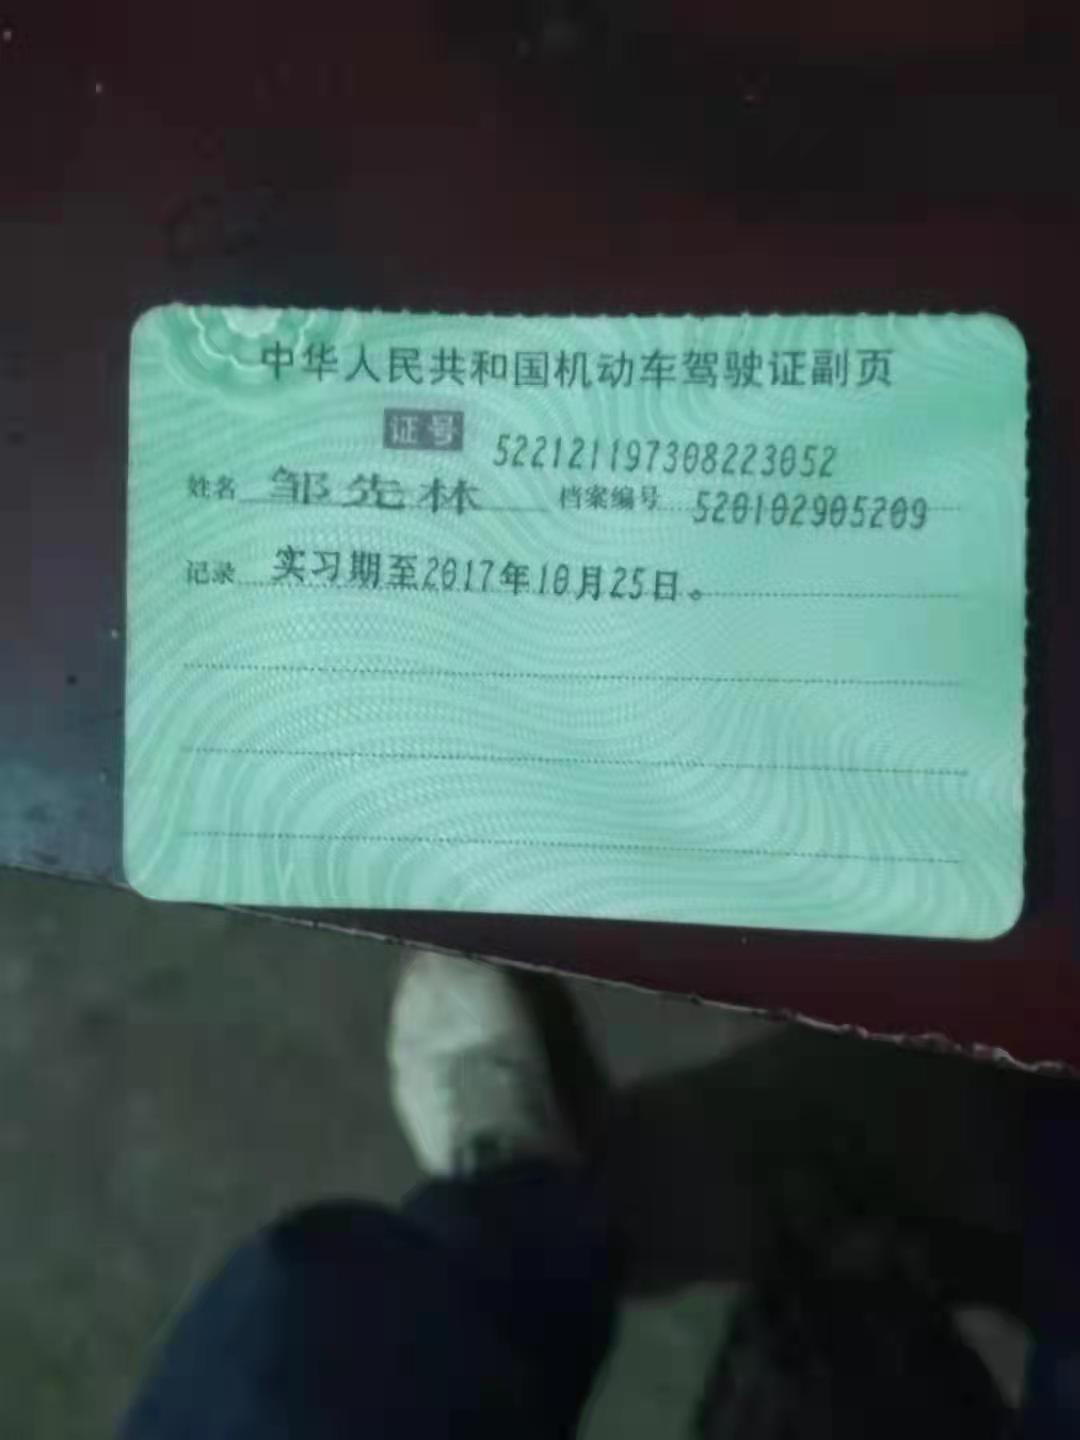 中华人民共和国机动车驾驶证副页
证号 522121197308223052
姓名 邹先林 档案编号 520102905209
记录 实习期至2017年10月25日。